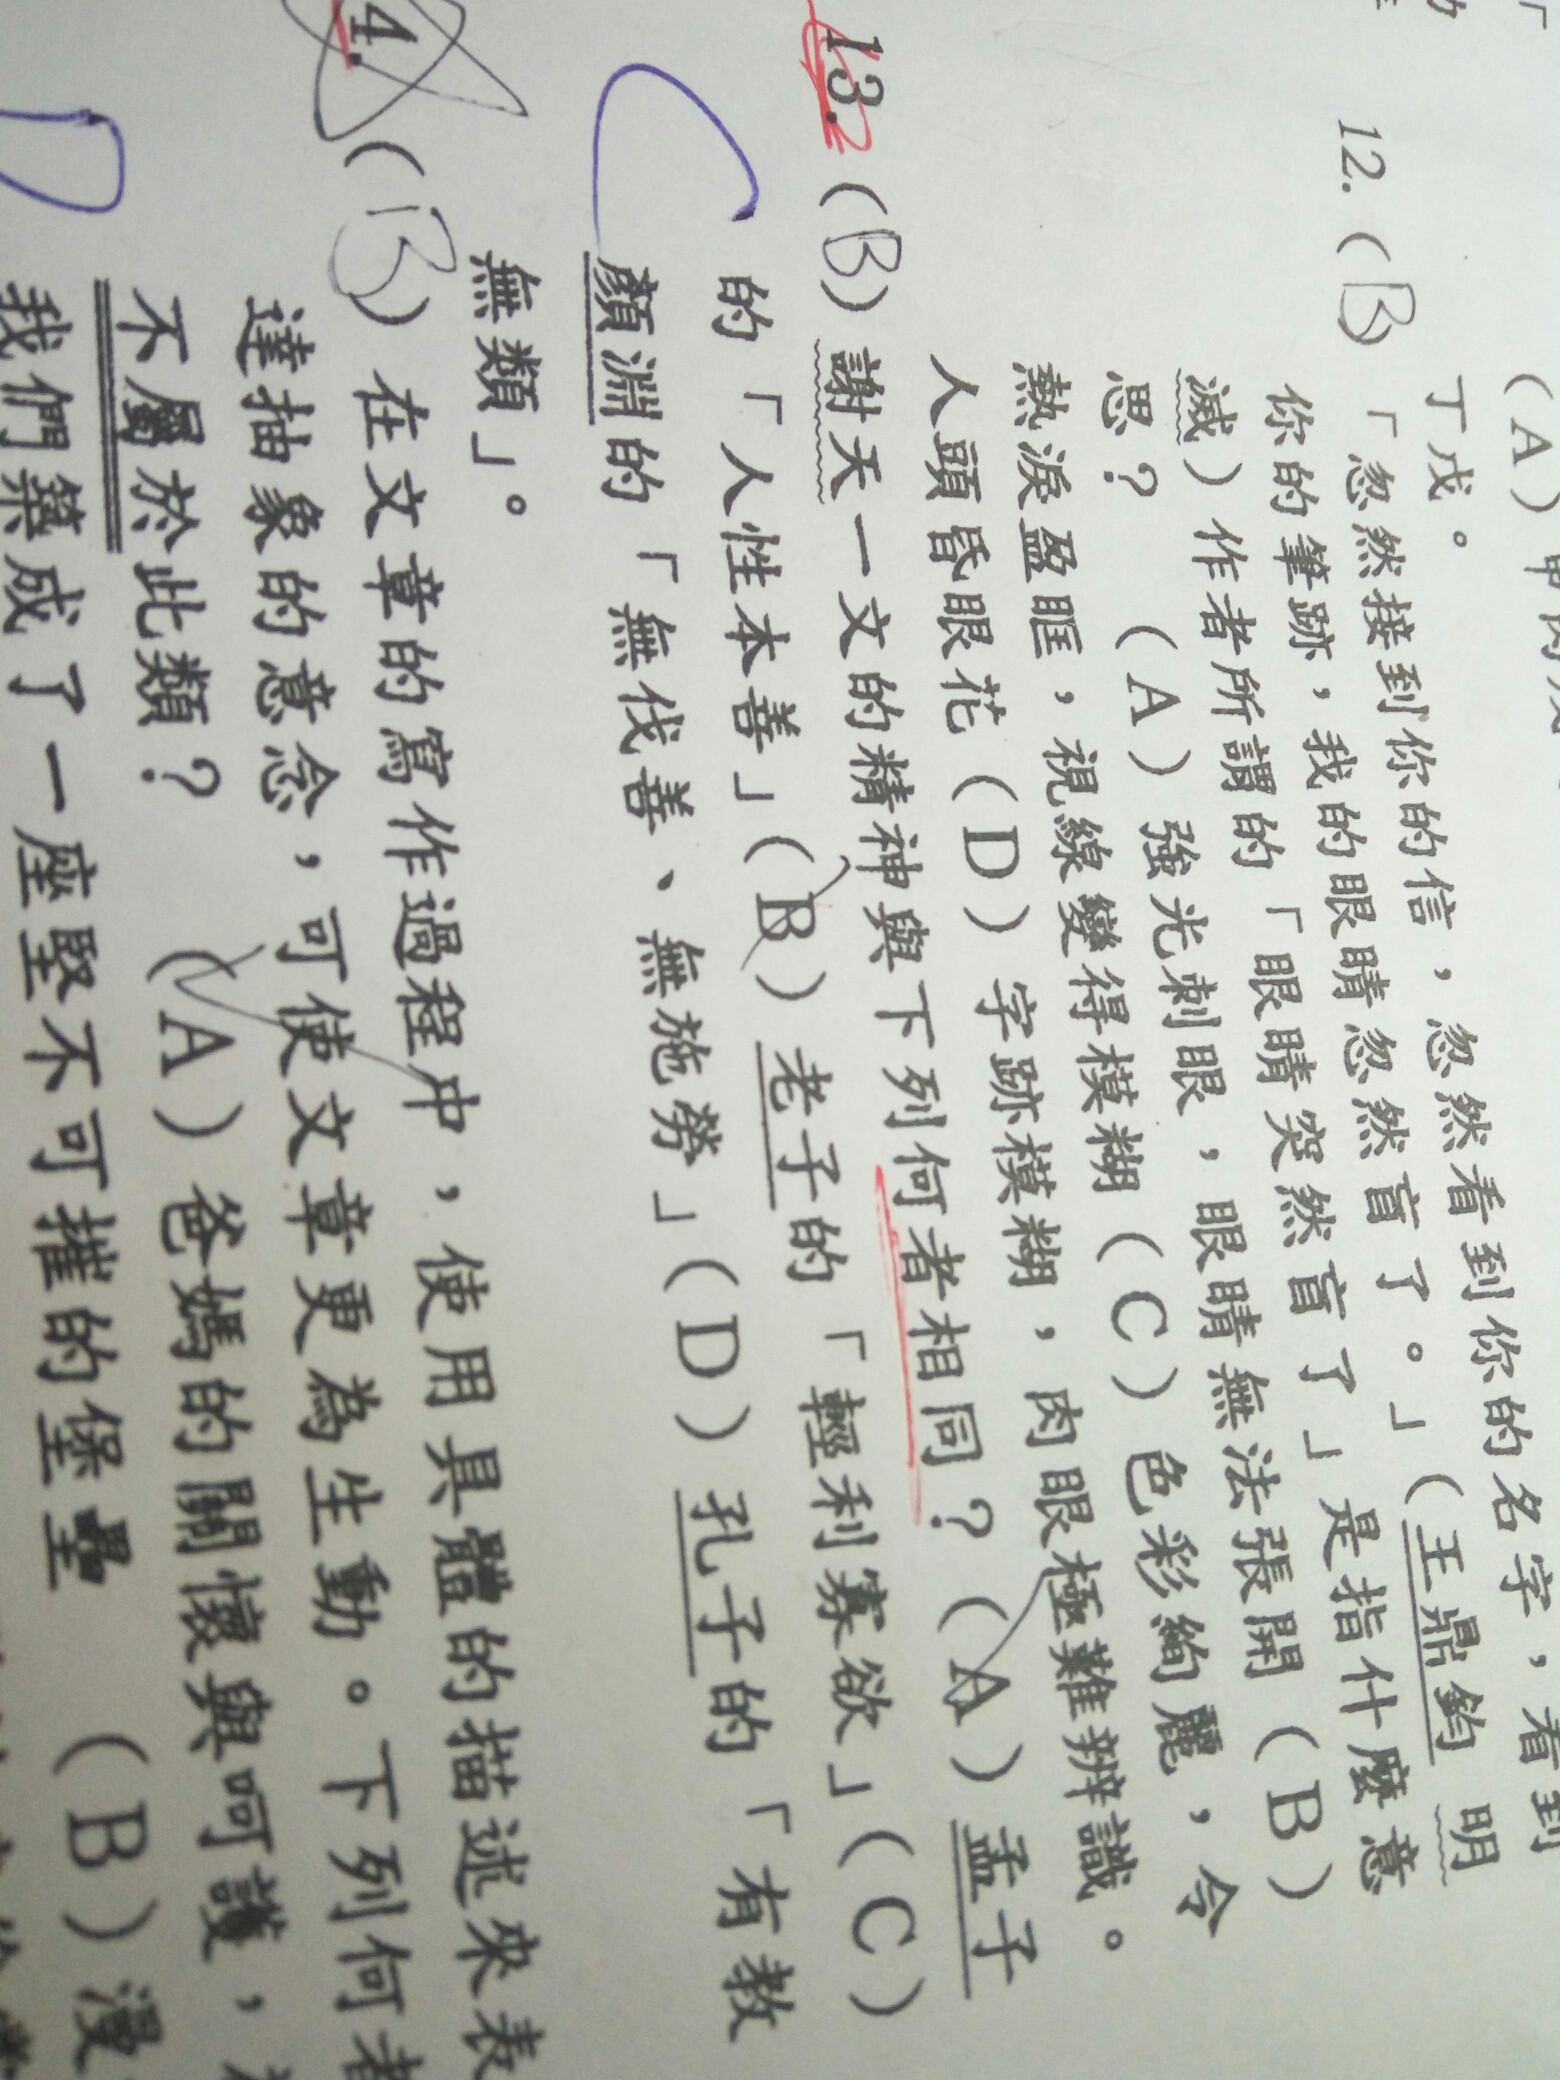 丁戊。
12.(B)「忽然接到你的信，忽然看到你的名字，看到
你的筆跡，我的眼睛忽然盲了。」(王鼎鈞 明
滅)作者所謂的「眼睛突然盲了」是指什麼意
思？ (A)強光刺眼，眼睛無法張開(B)
熱淚盈眶，視線變得模糊(C)色彩絢麗，令
人頭昏眼花(D)字跡模糊，肉眼極難辨識。
13.(B)謝天一文的精神與下列何者相同？(A)孟子
的「人性本善」(B)老子的「輕利寡欲」(C)
C
顏淵的「無伐善、無施勞」(D)孔子的「有教
無類」。
4.(B)在文章的寫作過程中，使用具體的描述來表
達抽象的意念，可使文章更為生動。下列何者
不屬於此類？ (A)爸媽的關懷與呵護，
D
我們築成了一座堅不可摧的堡壘 (B)漫